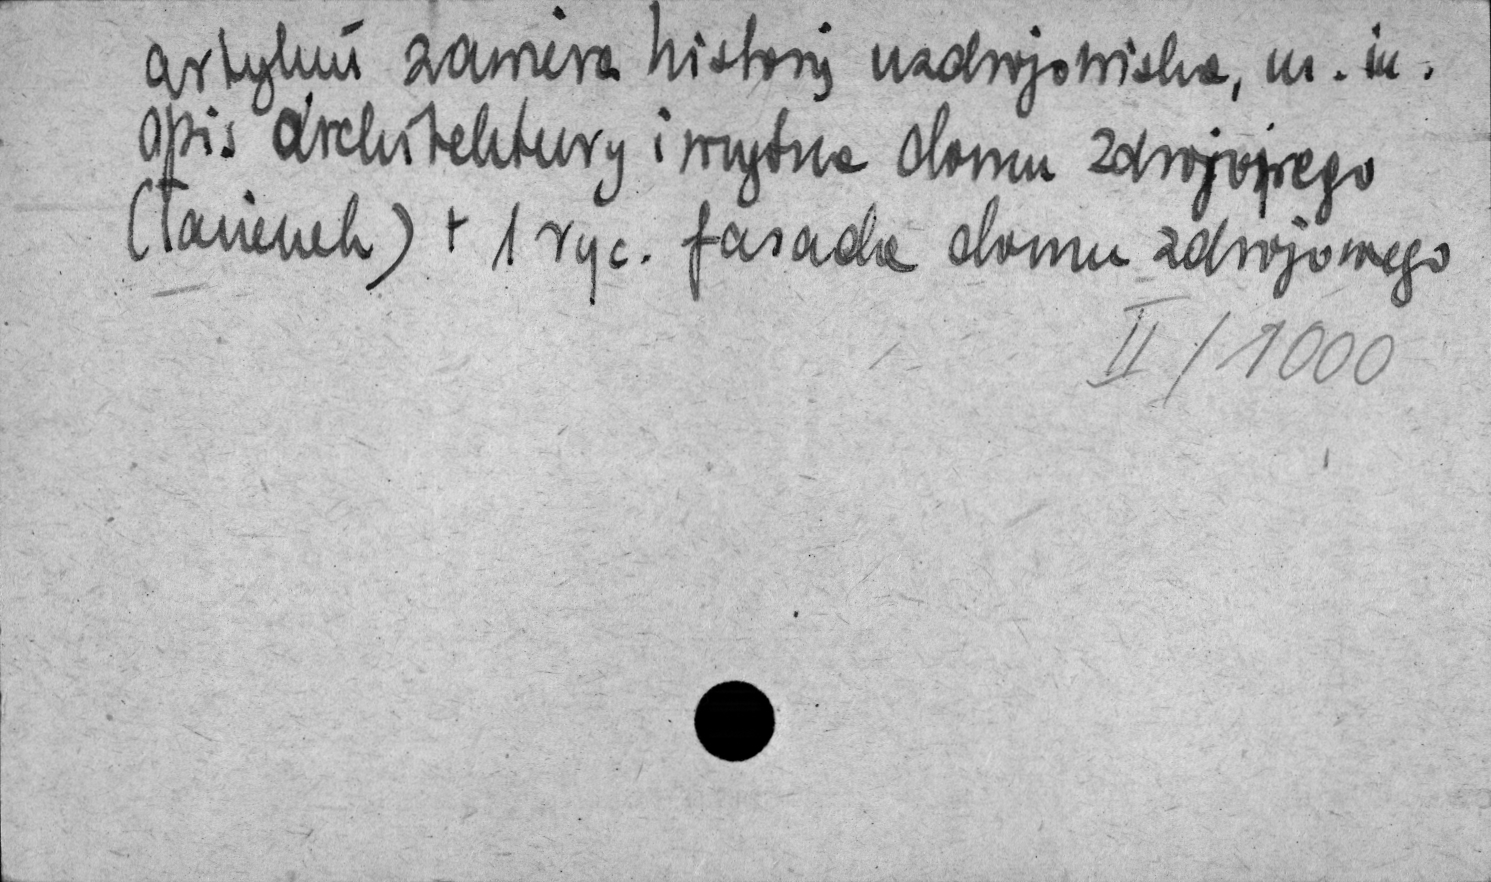 artykuł zawiera historię uzdrojowiska, m. in.
opis architektury i wnętrza domu zdrojowego
(łazienek) + 1 ryc. fasada domu zdrojowego
II/1000